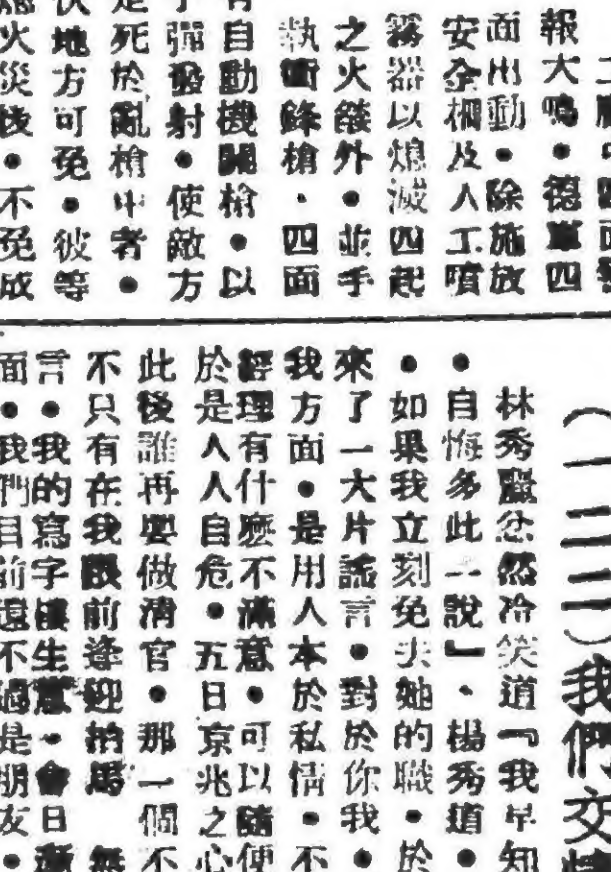 報大鳴●德軍四
面出動●除施放
安全柵及人工噴
霧器以熄滅四起
之火燄外●並手
執衝鋒槍●四面
有自動機關槍●以
子彈發射●使敵方
是死於亂槍中者●
伏地方可免●彼等
火災後●不免成
(一二二)我們交情
林秀麗忿然冷笑道『我早知
●自悔多此一說』、楊秀道●
●如果我立刻免去她的職●於
來了一大片謠言●對於你我●
我方面●是用人本於私情●不
經理有什麼不滿意●可以隨便
於是人人自危●五日京兆之心
此後誰再要做清官●那一個不
不只有在我眼前逢迎拍馬 無
言●我的寫字樓生意●會日漸
面●我們目前還不過是朋友●